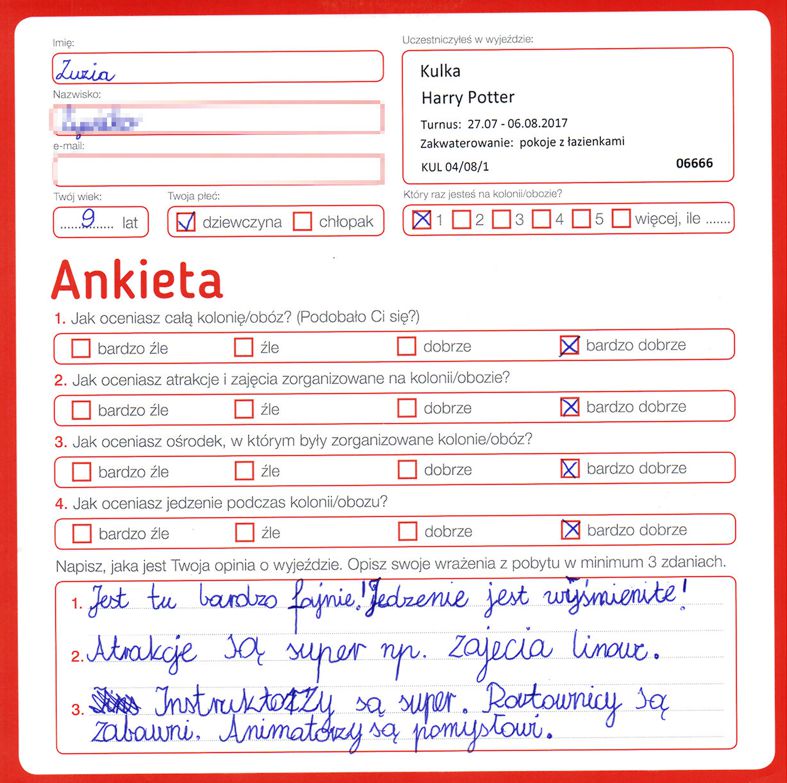 Imię:
Zuzia
Nazwisko:
e-mail:
Twój wiek:
9 lat
Twoja płeć:
dziewczyna
chłopak
Uczestniczyłeś w wyjeździe:
Kulka
Harry Potter
Turnus: 27.07 - 06.08.2017
Zakwaterowanie: pokoje z łazienkami
KUL 04/08/1 06666
Który raz jesteś na kolonii/obozie?
1 2 3 4 5 więcej, ile .......
Ankieta
1. Jak oceniasz całą kolonię/obóz? (Podobało Ci się?)
bardzo źle źle dobrze bardzo dobrze
2. Jak oceniasz atrakcje i zajęcia zorganizowane na kolonii/obozie?
bardzo źle źle dobrze bardzo dobrze
3. Jak oceniasz ośrodek, w którym były zorganizowane kolonie/obóz?
bardzo źle źle dobrze bardzo dobrze
4. Jak oceniasz jedzenie podczas kolonii/obozu?
bardzo źle źle dobrze bardzo dobrze
Napisz, jaka jest Twoja opinia o wyjeździe. Opisz swoje wrażenia z pobytu w minimum 3 zdaniach.
1. Jest tu bardzo fajnie! Jedzenie jest wyśmienite!
2. Atrakcje są super np. zajecia linowe.
3. Instruktorzy są super. Ratownicy są
zabawni. Animatorzy są pomysłowi.